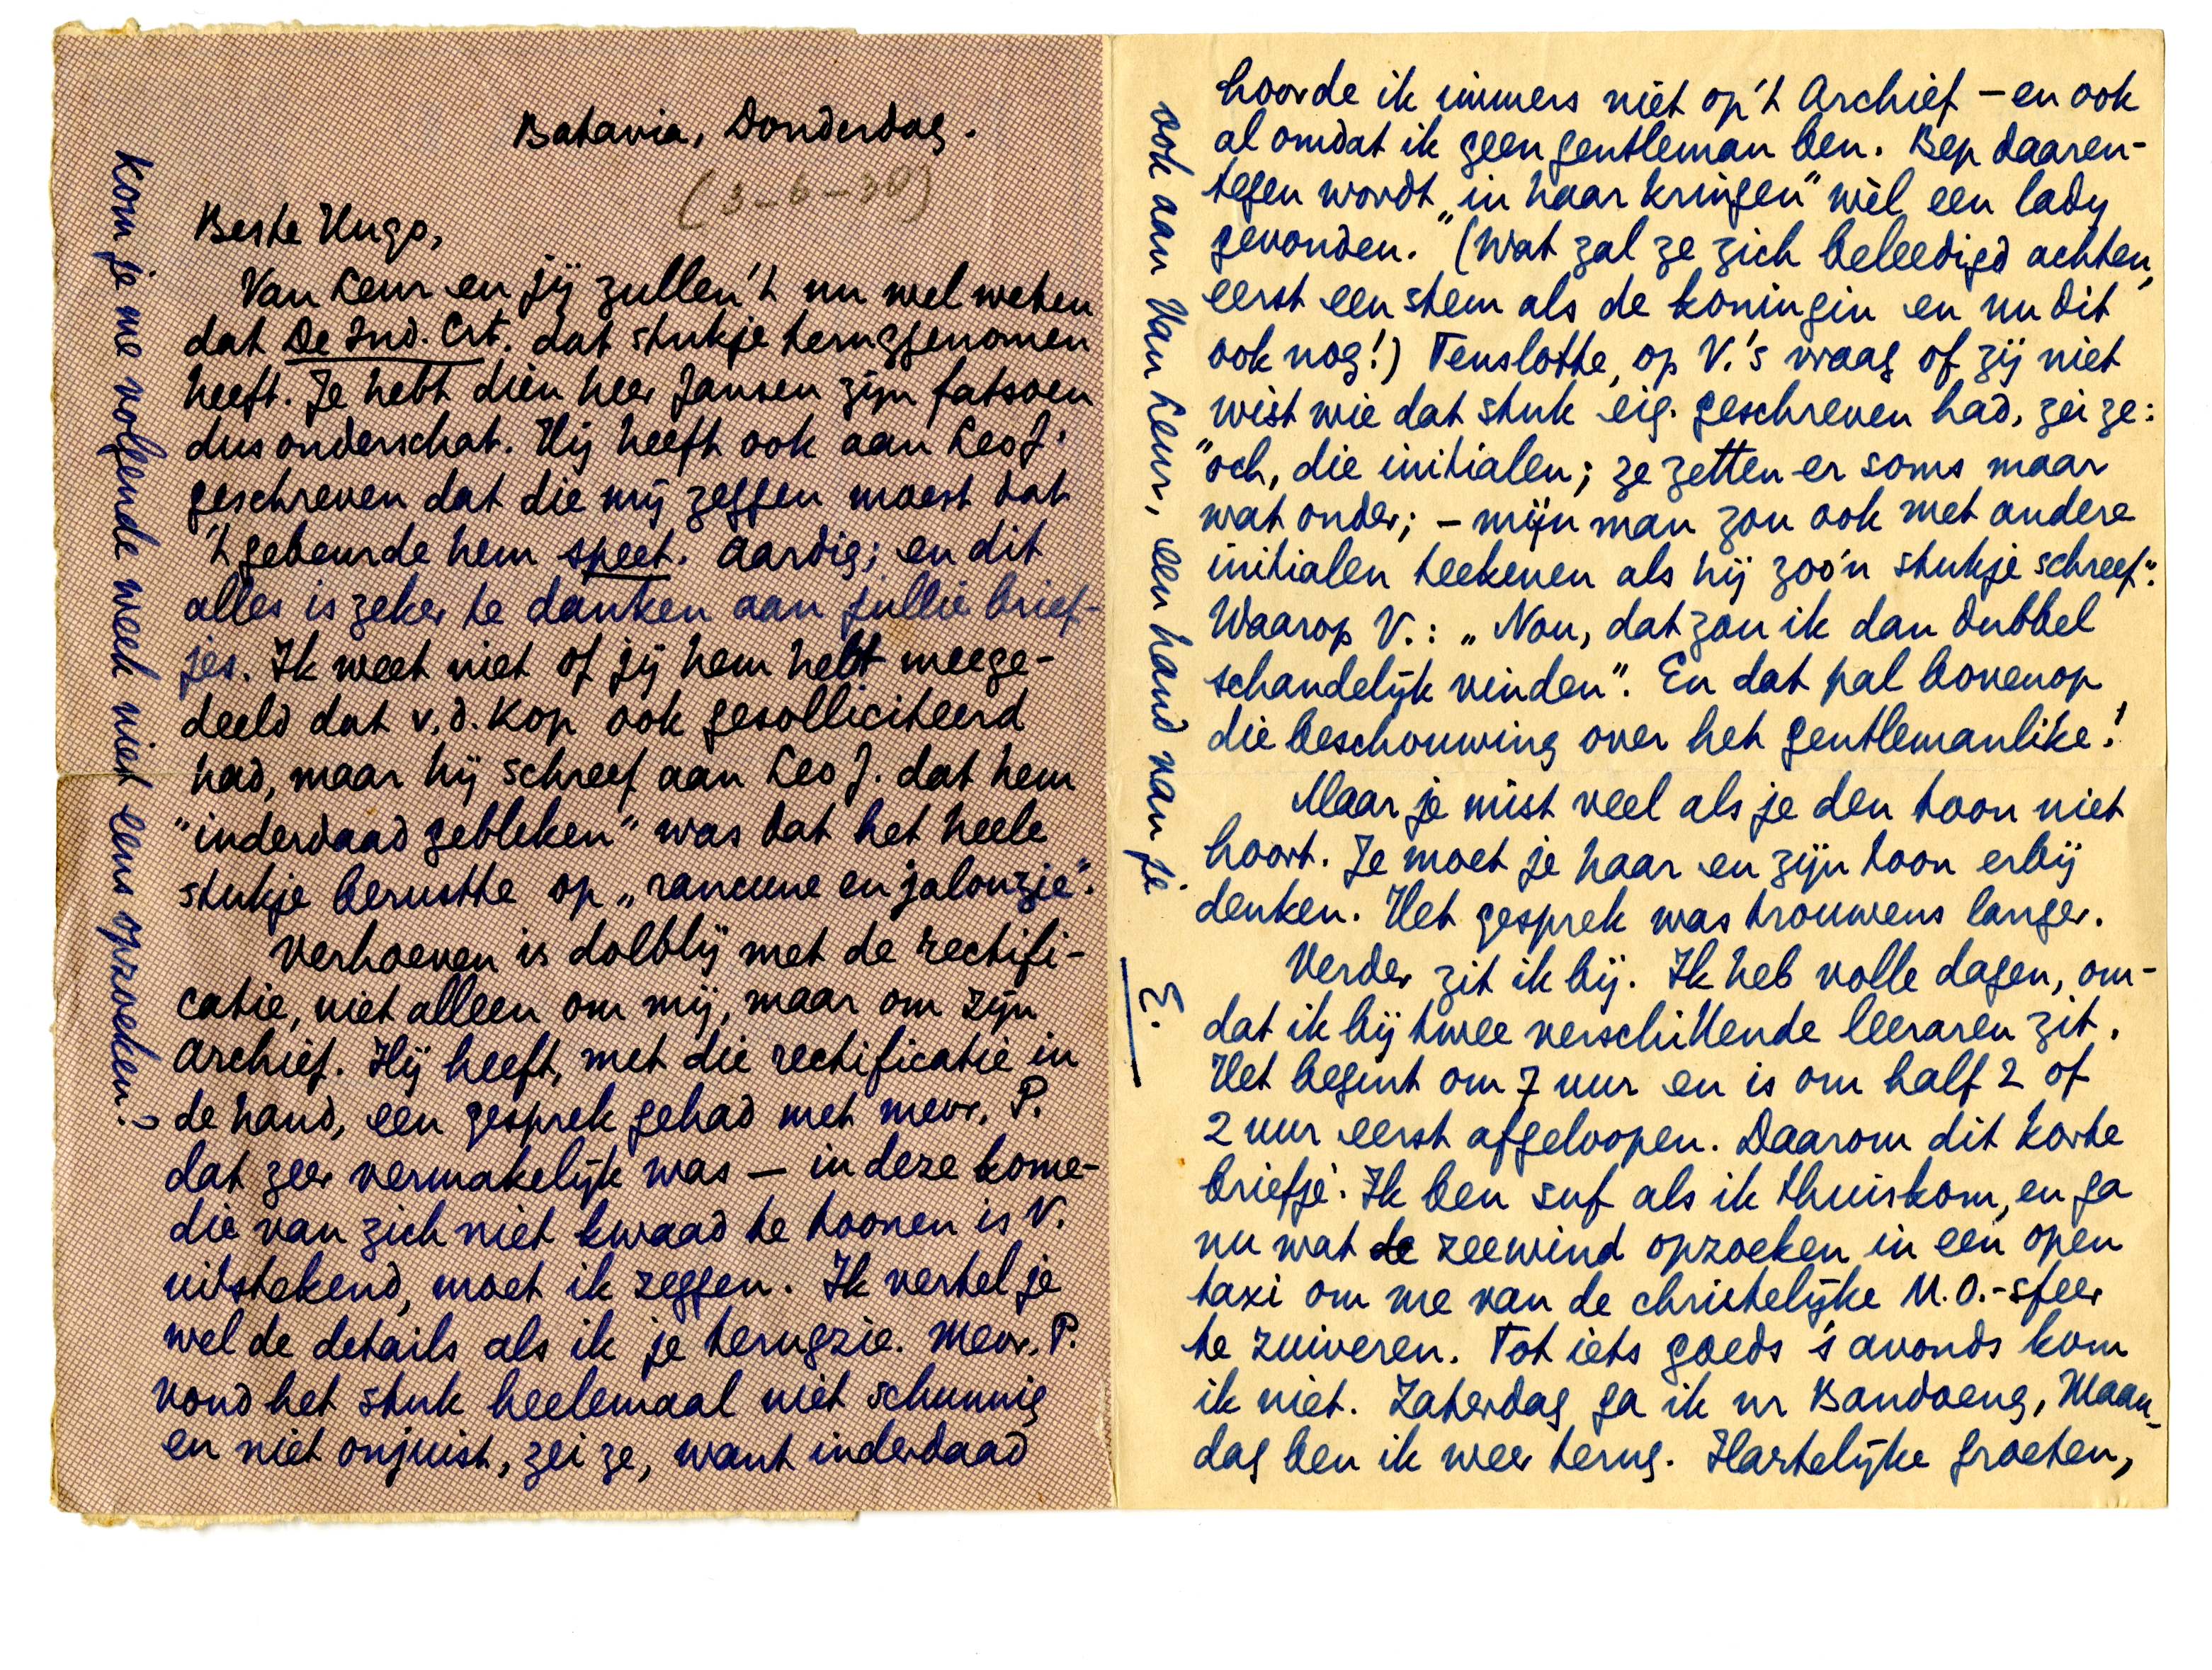 Batavia, Donderdag.
(3-6-38)
Beste Hugo,
Van Leur en jij zullen 't nu wel weten
dat De Ind. Crt. dat stukje teruggenomen
heeft. Je hebt dien heer Jansen zijn fatsoen
dus onderschat. Hij heeft ook aan Leo J.
geschreven dat die mij zeggen moest dat
't gebeurde hem speet. Aardig; en dit
alles is zeker te danken aan jullie brief-
jes. Ik weet niet of jij hem hebt meege-
deeld dat v.d. Kop ook gesolliciteerd
had, maar hij schreef aan Leo J. dat hem
"inderdaad gebleken" was dat het heele
stukje berustte op „rancune en jalouzie".
Verhoeven is dolblij met de rectifi-
catie, niet alleen om mij, maar om zijn
Archief. Hij heeft, met die rectificatie in
de hand, een gesprek gehad met mevr. P.
dat zeer vermakelijk was — in deze kome-
die van zich niet kwaad te toonen is V.
uitstekend, moet ik zeggen. Ik vertel je
wel de details als ik je terugzie. Mevr. P.
vond het stuk heelemaal niet schunnig
en niet onjuist, zei ze, want inderdaad
hoorde ik immers niet op 't Archief – en ook
al omdat ik geen gentleman ben. Bep daaren-
tegen wordt „in haar kringen" wèl een lady
gevonden." (Wat zal ze zich beleedigd achten,
eerst een stem als de koningin en nu dit
ook nog!) Tenslotte, op V.'s vraag of zij niet
wist wie dat stuk eig. geschreven had, zei ze:
"och, die initialen; ze zetten er soms maar
wat onder; – mijn man zou ook met andere
initialen teekenen als hij zoo'n stukje schreef".
Waarop V.: „Nou, dat zou ik dan dubbel
schandelijk vinden". En dat pal bovenop
die beschouwing over het gentlemanlike!
Maar je mist veel als je den toon niet
hoort. Je moet je haar en zijn toon erbij
denken. Het gesprek was trouwens langer.
Verder zit ik bij. Ik heb volle dagen, om-
dat ik bij twee verschillende leeraren zit.
Het begint om 7 uur en is om half 2 of
2 uur eerst afgeloopen. Daarom dit korte
briefje. Ik ben suf als ik thuiskom, en ga
nu wat de zeewind opzoeken in een open
taxi om me van de christelijke M.O.-sfeer
te zuiveren. Tot iets goeds 's avonds kom
ik niet. Zaterdag ga ik nr Bandoeng, Maan-
dag ben ik weer terug. Hartelijke groeten,
ook aan Van Leur, een hand van je
E.
Kom je me volgende week niet eens opzoeken?